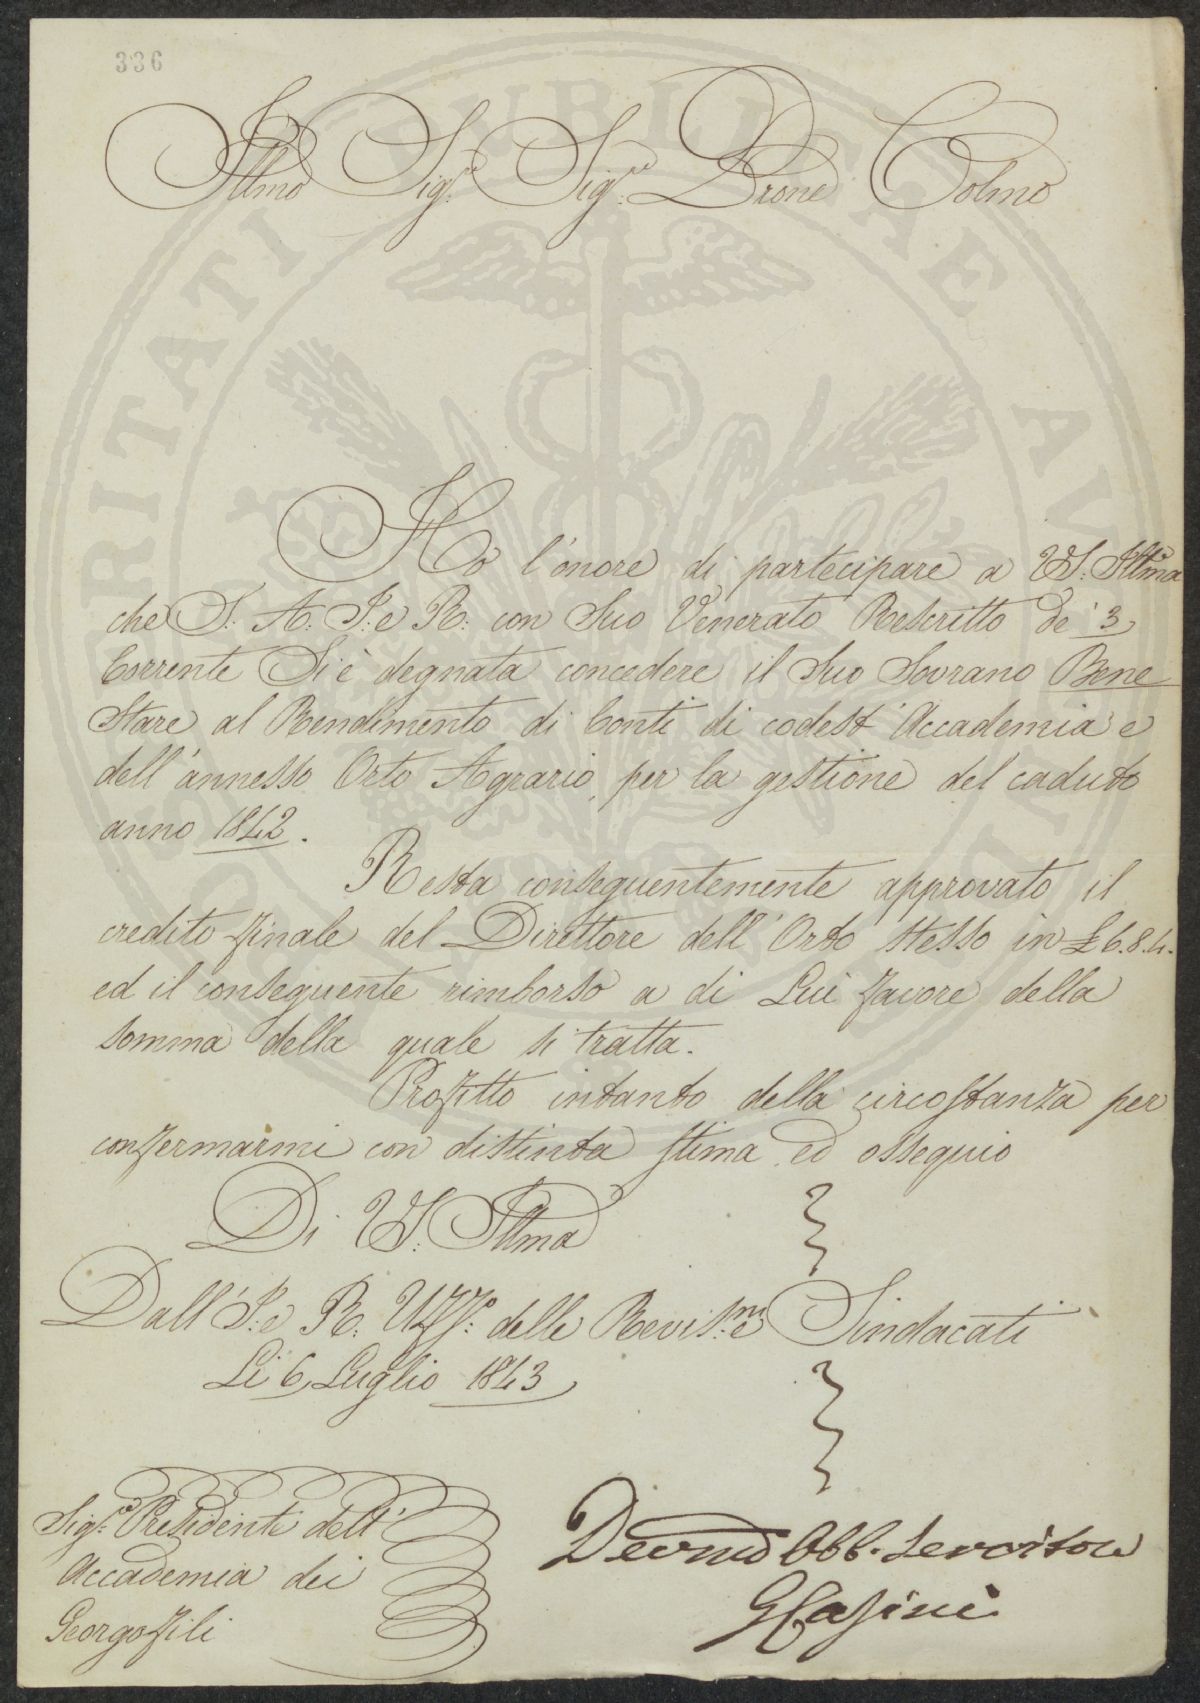 336
Illmo Sig.re Sig.re Prone Colmo
Hò l'onore di partecipare a VS: Illma
che S: A: I: e R: con Suo Venerato Rescritto de' 3
Corrente Si è degnata concedere il Suo Sovrano Bene
Stare al Rendimento di Conti di codest' Accademia e
dell'annesso Orto Agrario, per la gestione del caduto
anno 1842.
Resta conseguentemente approvato il
credito finale del Direttore dell'Orto stesso in £ 6.8.4.
ed il conseguente rimborso a di Lui favore della
somma della quale si tratta.
Profitto intanto della circostanza per
confermarmi con distinta stima ed ossequio
Di VS: Illma
Dall'I: e R: Uff.o delle Revis.ni e Sindacati
Li 6 Luglio 1843
Sig.re Presidente dell'
Accademia dei
Georgofili
Devmo Obb. Servitore
G Casini